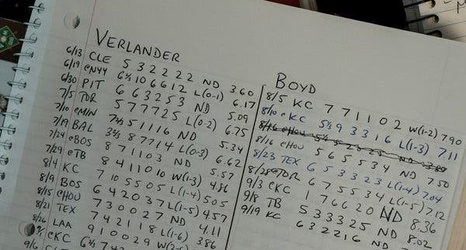 VERLANDER
6/13 CLE 5 3 2 2 2 2 ND 3.60
6/19 @NYY 6⅓ 10 6 6 1 2 L(0-1) 6.17
6/30 PIT 6 6 3 2 5 3 ND 5.09
7/5 TOR 5 7 7 7 2 5 L(0-2) 6.75
7/10 @MIN 7⅔ 5 1 1 1 6 ND 5.34
7/19 BAL 3⅓ 8 7 7 1 4 L(0-3) 6.62
7/24 @BOS 8 7 1 1 0 3 ND 5.57
7/29 @TB 8 4 1 1 0 10 W(1-3)
8/4 KC 7 10 5 5 0 5 L(1-4)
8/9 BOS 6 4 2 0 3 7 L(1-5) 4.57
8/15 @HOU 7 3 0 0 2 7 ND 4.11
8/21 TEX 7 4 2 1 1 8 L(1-6) 3.86
8/26 LAA 9 1 0 0 2 9
@KC
BOYD
8/5 KC 7 7 1 1 0 2 W(1-2) 7.90
8/10 @KC 5⅓ 9 3 3 1 6 L(1-3) 7.11
8/16 @HOU
8/16 @HOU 5 6 5 5 3 4 ND 7.50
8/23 TEX 6 5 3 3 2 3 L(1-4) 7.04
8/28 @TOR 6 7 5 5 3 4 L(1-5) 7.12
9/3 @KC 1 7 6 6 2 0 ND 8.36
9/8 TB 5 3 3 3 2 5 ND 8.02
9/19 KC 6 3 2 2 1 6 ND